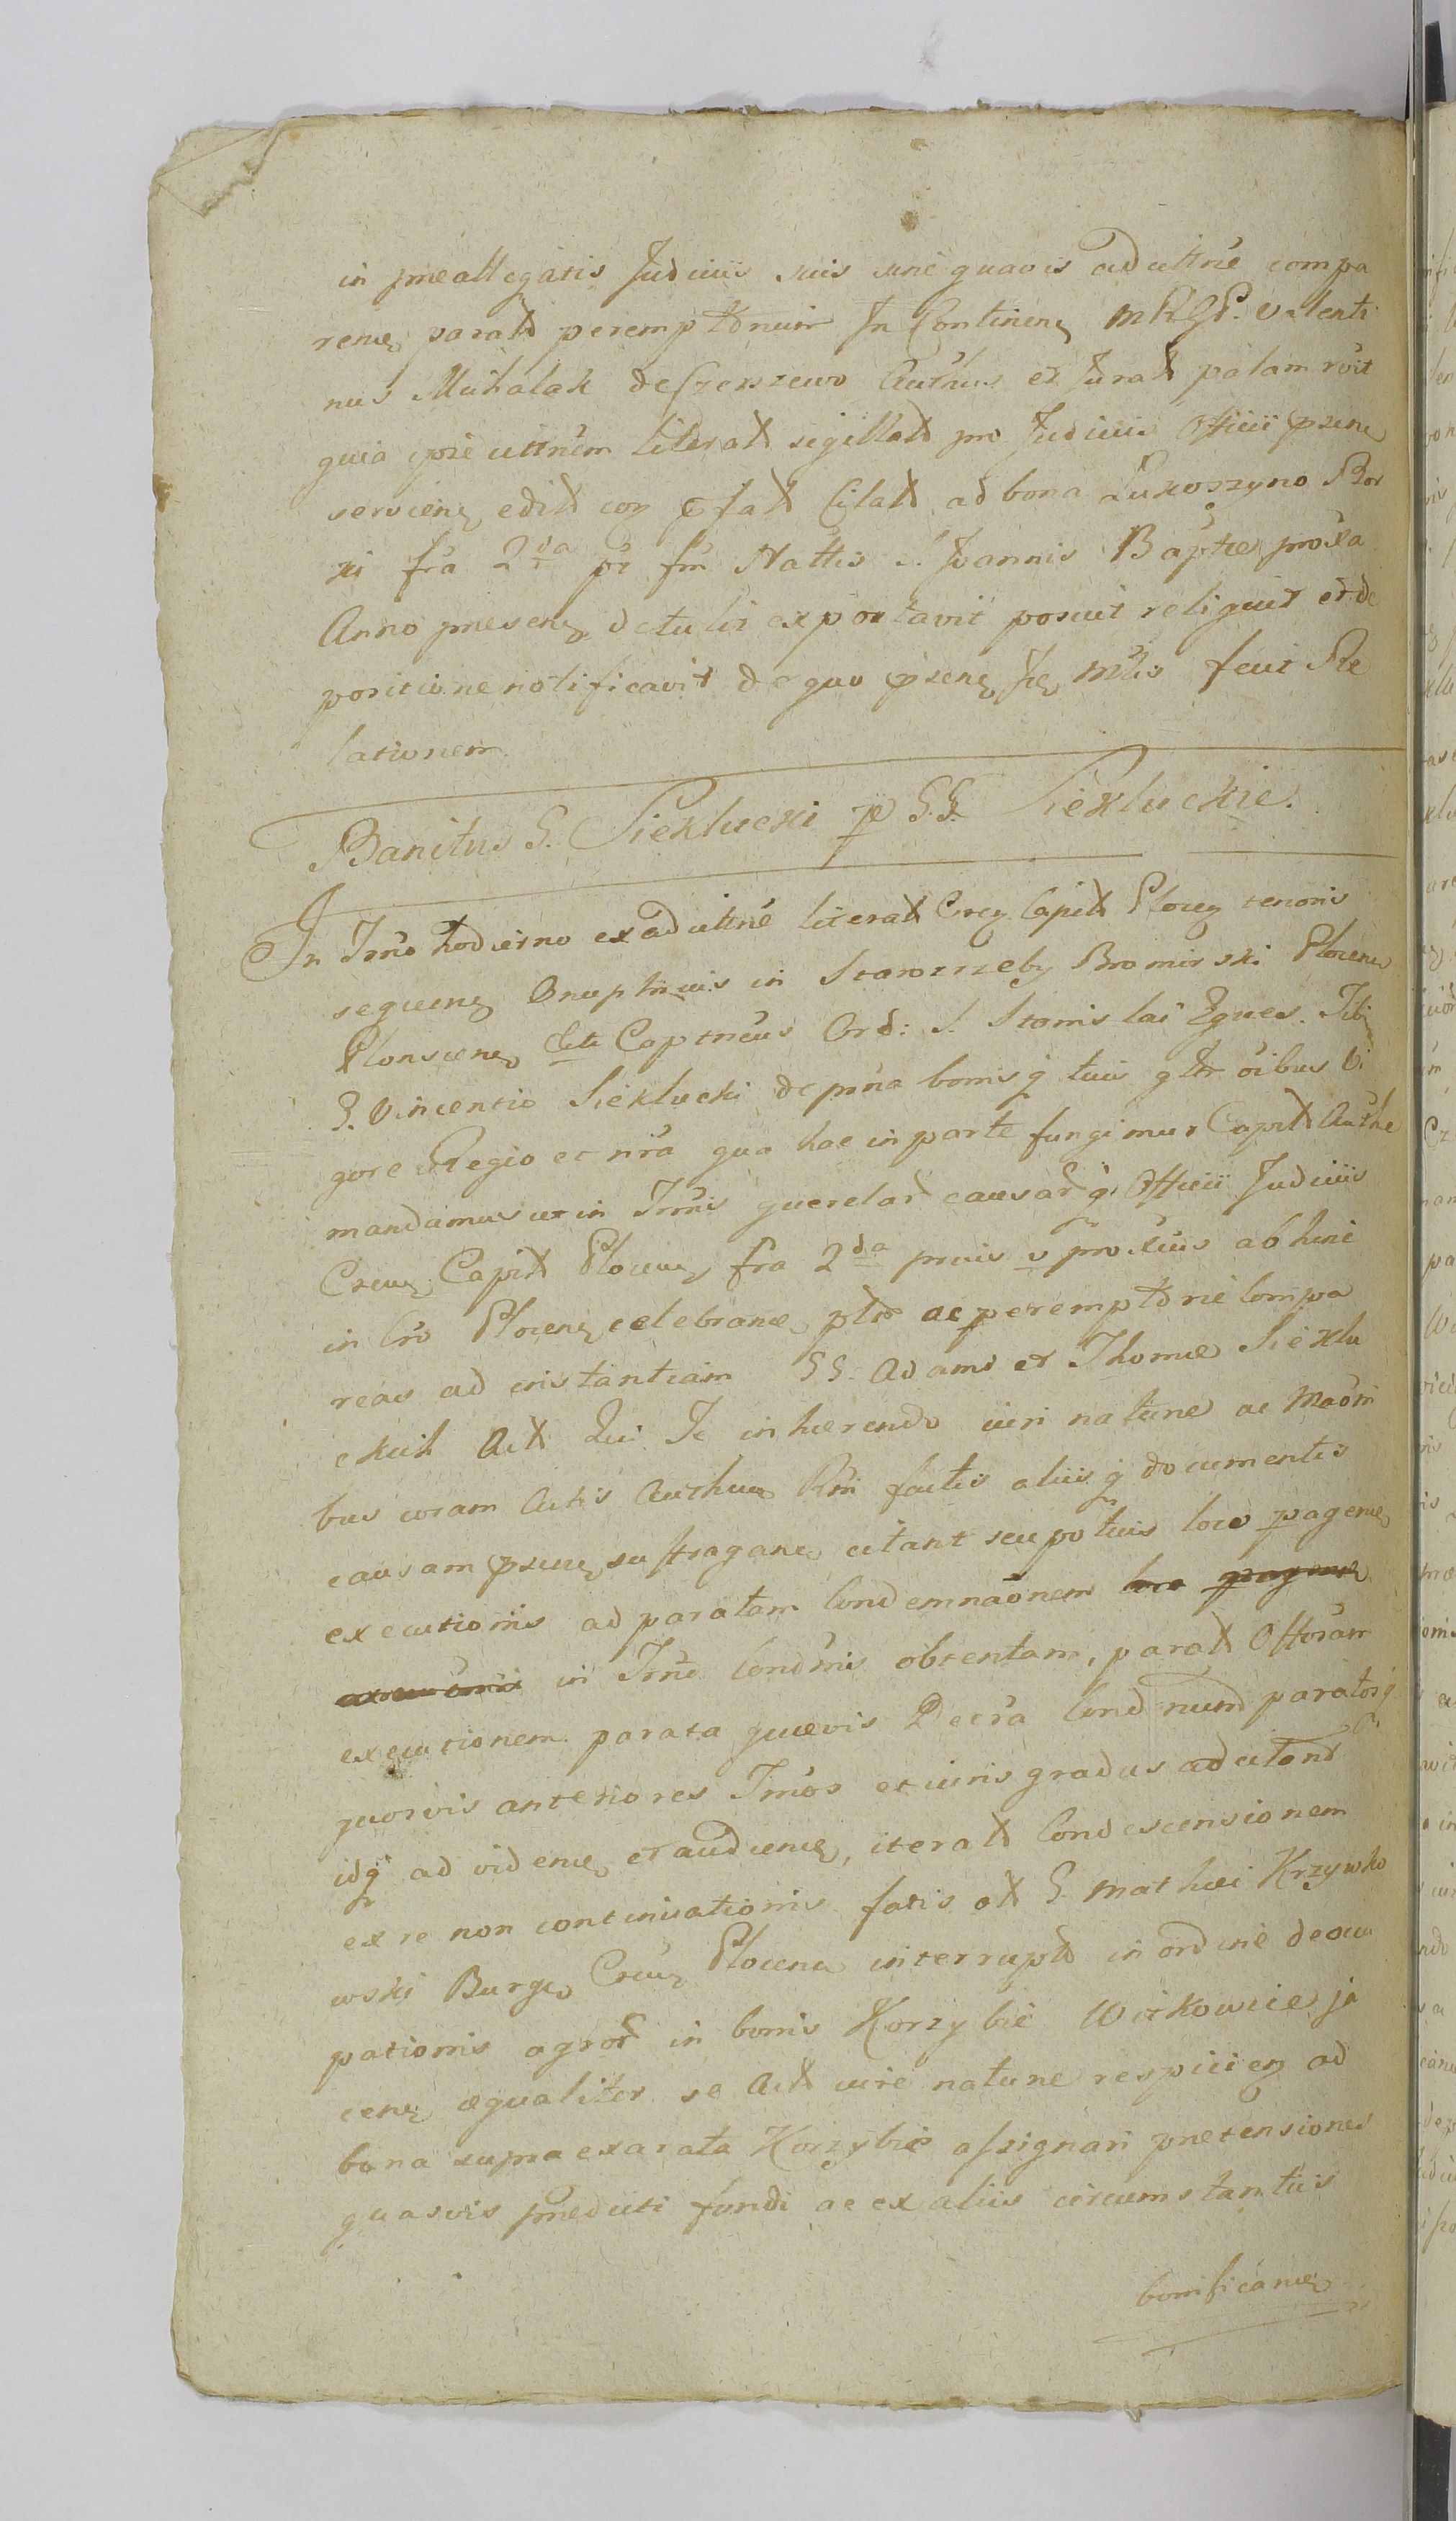 in praeallegatis Judiciis suis sine quavis adcittne compa
renđ, parałđ peremptđnum In Continenź MRGP. Valenti
nus Michalak de Czerszewo Authus et Juratđ palam rčit
quia ipse cittnem literatđ sigillatđ pro Judiciis Officii pszenź
servienź editđ coź pfatđ Citatđ ad bona Lukoszyno Bor
ki fra 2da pt fm Nattis S. Joannis Baptae proxa
Anno praesenź detulit exportavit posuit reliquit et de
positione notificavit de quo pszenź Jź Mtis fecit Re
lationem.
Banitus G. Sieklucki p GG. Siekluckie.
In Trmo hodierno ex adcittne literatđ Crcź Capitđ Plocź tenoris
sequenź Onuphrius in Starorzeby Bromirski Plocenź
Plonscenź Ettc Captneus Ord: S. Stanislai Eques. Tibi
G. Vincentio Sieklucki de pna bonisq tuis gltr oibus Vi
gore Regio et nra qua hac in parte fungimur Capitđ Authe
mandamus ut in Trmis querelarđ causarđq Officii Judiciis
Crenź Capitđ Plocenź fra 2da pmis v proxius abhinc
in Cro Plocenź celebranđ, pltr ac peremptđrie Compa
reas ad instantiam GG. Adami et Thomae Sieklu
ckich Actđ Qui Te inhaerendo iuri naturae ac Maōni
bus coram Actis Authenź Rni factis aliisq documentis
causam pszenź suffraganź citant seu potius loco pagenź
executionis ad paratam Condemnaōnem
in Trmo Condmis obtentam, paratđ Offoram
executionem parata quaevis Decra Cond numđ paratosq
quosvis anteriores Trmos et iuris gradus adcitanđ
idq ad videnđ et audienđ, iteratđ Condescensionem
ex re non continuationis fatis otđ G. Mathaei Krzywko
wski Burgź Crenź Plocenź interruptđ in ordine deoccu
pationis agrorđ in bonis Korzybie Witkowie ja
cenź aequaliter se Actđ iure naturae respicienź ad
bona supra exarata Korzybie assignari praetensiones
quasvis praedicti fundi ac ex aliis circumstantiis
bonificanđ